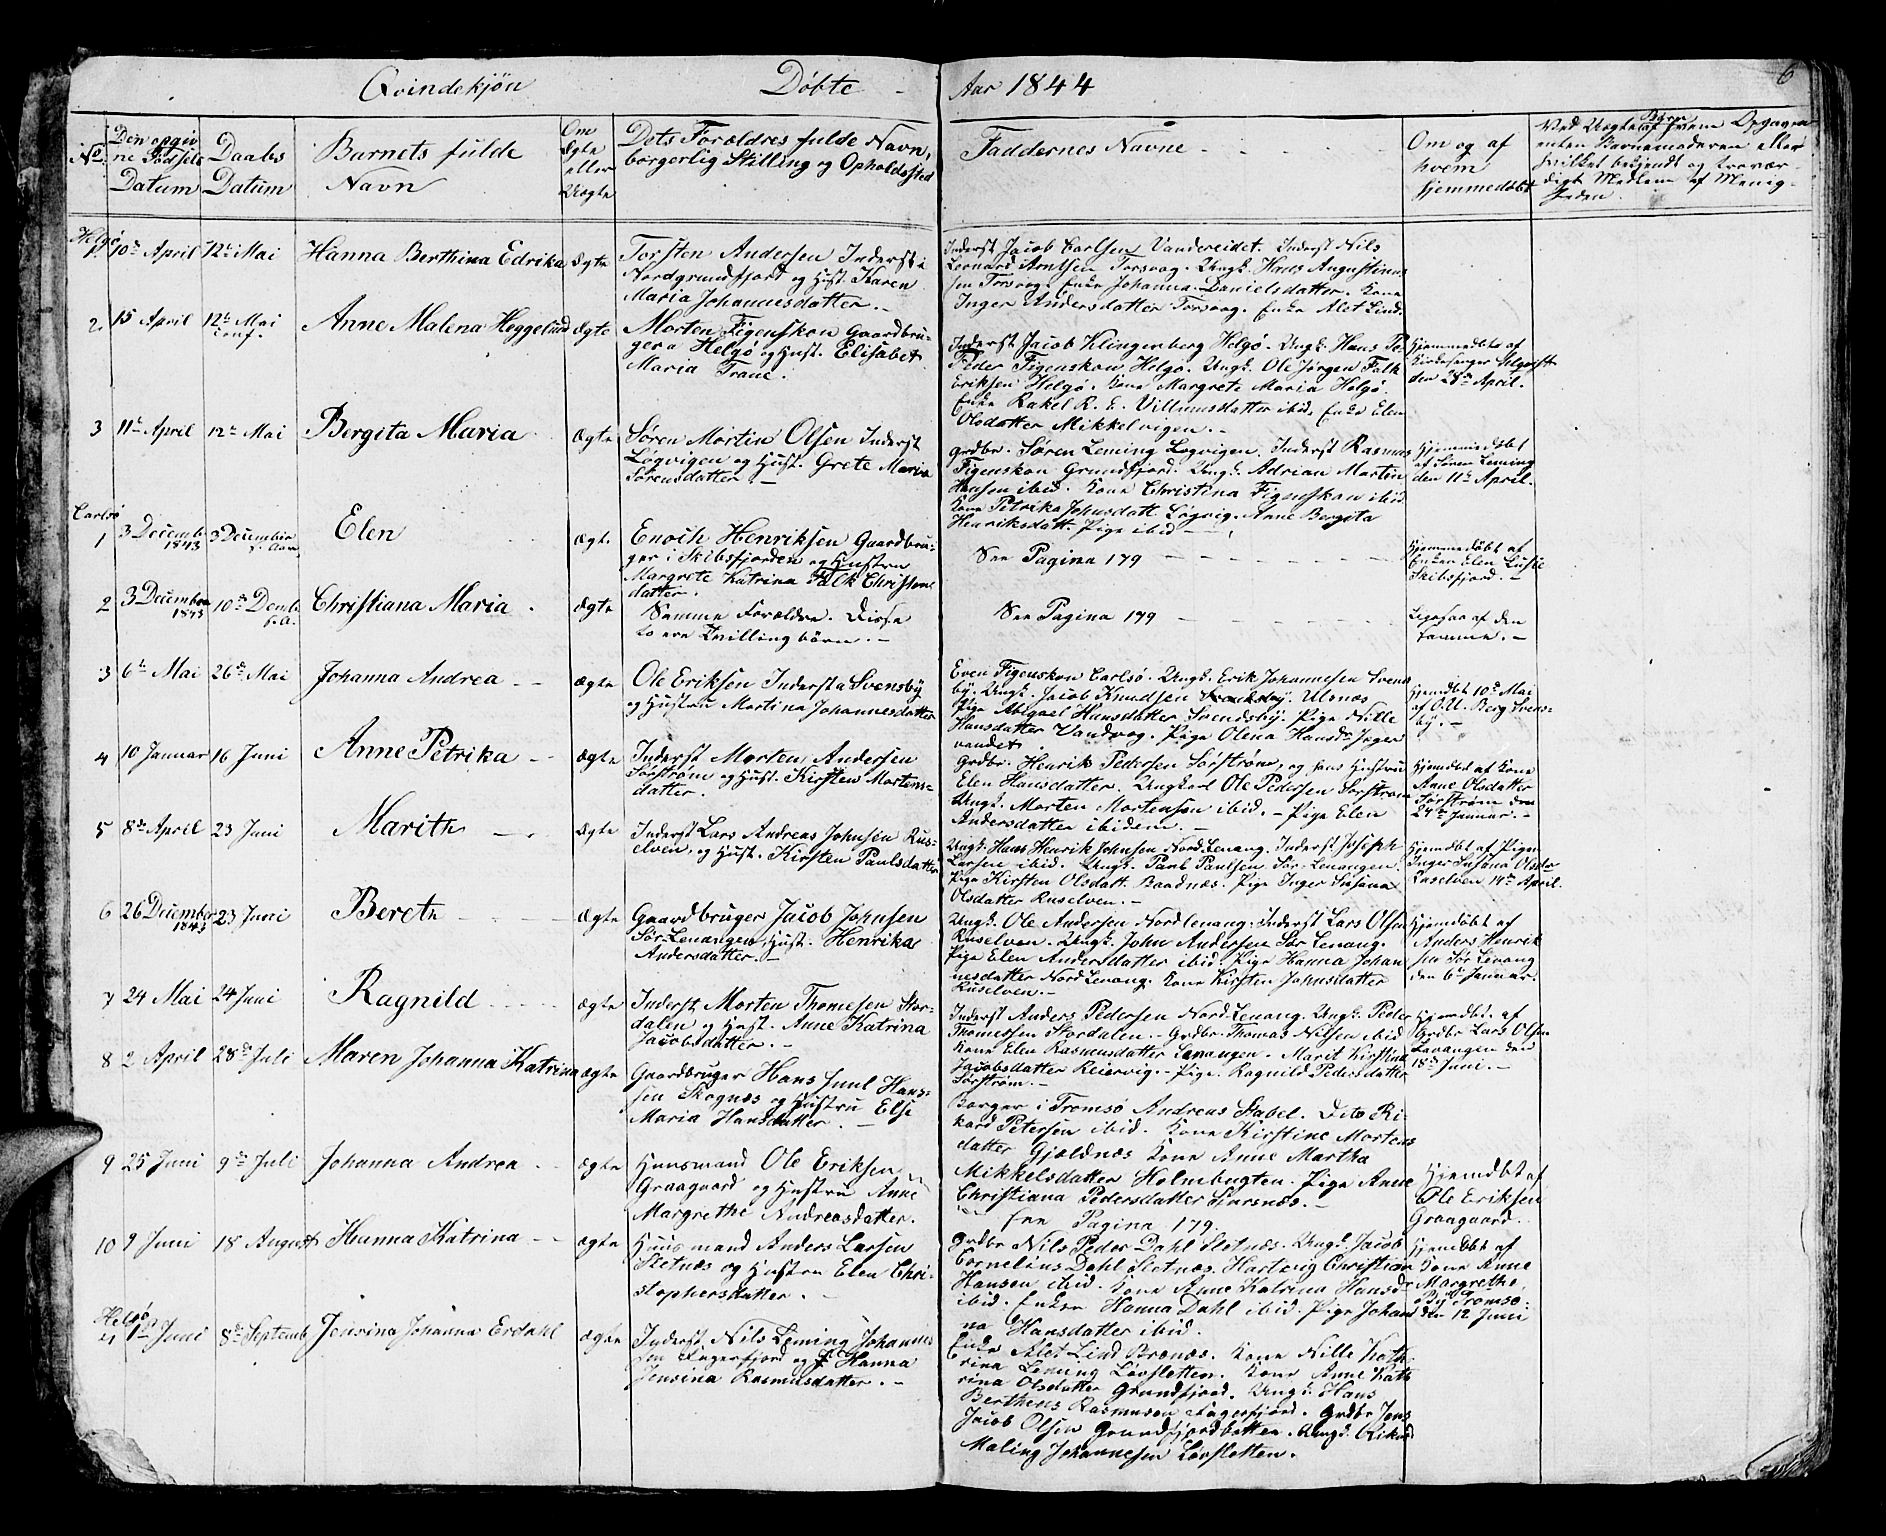 Qvindekjön Döbte - Aar 1844 6
No.
Den opgiv
ne Födsels
Datum
Daabs
Datum
Barnets fulde
Navn
Om
Ægte
eller
Uægte
Dets Forældres fulde Navn,
borgerlig Stilling og Opholdssted
Faddernes Navne
Om og af
hvem
hjemmedöbt
Ved Uægte Börn af hvem Opgaven
enten Barnemoderen eller
hvilket bekjendt og troevær-
digt Medlem af Menig-
heden.
Helgö
1 10de April 12te Mai Hanna Berthina Edrika Ægte
Torsten Andersen Inderst i
Nordgrundfjord og Hust. Karen
Maria Johannesdatter. -
Inderst Jacob Carlsen Vandereidet. Inderst Nils
Leonard Arntsen Torsvog. Ungk. Hans Augustinus
sen Torsvog. Enke Johanna Danielsdatter. Kone
Inger Andersdatter Torsvog. Enke Alet Lind.
2 15 April 12te Mai
conf.
Anne Malena Heggelund Ægte
Morten Figenskou Gaardbru-
ger a Helgö og Hust. Elisabet
Maria Trane.
Inderst Jacob Klingenberg Helgö. Ungk. Hans Pe-
Peder Figenskou Helgö. Ungk. Ole Jörgen Falk
Eriksen Helgö. Kone Margrete Maria Helgö
Enke Rakel R. E. Villumsdatter ibid. Enke Elen
Olsdatter Mikkelvigen. -
Hjemmedöbt af
Kirkesanger
den 28de April.
3 11te April 12te Mai Bergita Maria Ægte
Sören Mortin Olsen Inderst
Lögvigen og Hust. Grete Maria
Sörensdatter. -
Grdbr. Sören Leming Logvigen. Inderst Rasmus
Figenskou Grundfjord. Ungk. Adrian Martin
Hansen ibid. Kone Christina Figenskou ibid.
Kone Petrika Johnsdatt. Lögvig. Anne Bergita
Henriksdatt. Pige ibid -
Hjemmedöbt
af Sören Leming
den 11te April.
Carlsö
1 3 Decemb.
1843
3 Decembr
f. Aar
Elen Ægte
Enoch Henriksen Gaardbru-
ger i Skibsfjorden og Hustru
Margrete Katrina Falk Christens
datter.
See Pagina 179
Hjemmedöbt af
Enken Elen
Skibsfjord. -
2 3 Decembr
1843
10de Decmb
f. A.
Christiana Maria . Ægte
Samme Forældre. Disse
to ere Tvillingbörn. -
See Pagina 179
Ligesaa af den
samme. -
3 6te Mai 26de Mai Johanna Andrea - Ægte
Ole Eriksen Inderst a Svensby
og Hustru Martina Johannesdatter
Even Figenskou Carlsö. Ungk. Erik Johannesen Svens
by. Ungk. Jacob Knudsen Ulsnæs
Pige Abigael Hansdatter Svendsby. Pige Nille
Hansdatter Vandvog. Pige Olena Hansdr Jæger
vandet.
Hjemdöbt 10de Mai
af O.U. Berg Svens-
by. -
4 10 Januar 16 Juni Anne Petrika - Ægte
Inderst Morten Andersen
Sörströme og Hust. Kirsten Mortens-
datter.
Grdbr. Henrik Pedersen Sörströme, og hans Hustru
Elen Hansdatter. Ungkarl Ole Pedersen Sörström
Ungk. Morten Mortensen ibid. - Pige Elen
Andersdatter ibidem. -
Hjemdöbt af Kone
Anne Olsdatter
Sörström den
24de Januar. -
5 8de April 23 Juni Marith - Ægte
Inderst Lars Andreas Johnsen Rus-
elven, og Hust. Kirsten Paulsdatter
Ungk. Hans Henrik Johnsen Nord Lenang. Inderst Joseph
Larsen ibid. Ungk. Paul Paulsen Sör-Lenangen.
Pige Kirsten Olsdatt. Baadnæs. Pige Inger Susana
Olsdatter Ruselven. -
Hjemdöbt af Pigen
Inger Susana Olsdr
Ruselven 14de April.
6 26 December
1843
23 Juni Berete - Ægte
Gaardbruger Jacob Johnsen
Sör-Lenangen, Hust. Henrika
Andersdatter. -
Ungk. Ole Andersen Nord Lenang. Inderst Lars Olsen
Ruselven. Ungk. John Andersen Sör Lenang.
Pige Elen Andersdatter ibid. Pige Hanna Johan
nesdatter Nord Lenang. Kone Kirsten Johnsdatter
Ruselven. -
Hjemdöbt af
Anders Henrik
sen Sör Lenang
den 6te Januar.
7 24 Mai 24 Juni Ragnild Ægte
Inderst Morten Thomesen Stor-
dalen og Hust. Anne Katrina
Jacobsdatter. -
Inderst Anders Pedersen Nord Lenang. Ungk. Peder
Thomessen Stordalen. - Grdbr. Thomas Nilsen ibid
Kone Elen Rasmusdatter Lenangen. Marit Kirstine
Jacobsdatter Reiervig. - Pige Ragnild Pedersdatter
Sörström. -
Hjemdöbt. af
Grdbr Lars Olsen
Lavangen den
18de Juni. -
8 2 April 28de Juli Maren Johanna Katrina Ægte
Gaardbruger Hans Juul Hans-
sen Skognæs og Hustru Else
Maria Hansdatter. -
Borger i Tromsö Andreas Stabel. Dito Ri-
kard Petersen ibid. Kone Kirstine Mortens
datter Gjøldnæs Kone Anne Martha
Mikkelsdatter Holmbugten. Pige Anne
Christiana Pedersdatter Finsnæs. -
9 25 Juni 9de Juli Johanna Andrea - Ægte
Huusmand Ole Eriksen
Graagaard og Hustru Anne
Margrethe Andreasdatter.
See Pagina 179.
Hjemdöbt af
Ole Eriksen
Graagaard.
10 9 Juni 18 August Hanna Katrina - Ægte
Huusmand Anders Larsen
Sletnæs og Hustru Elen Chri-
stophersdatter. -
Grdbr Nils Peder Dahl Sletnæs. Ungk. Jacob
Cornelius Dahl Sletnæs. Hartvig Christian
Hansen ibid. Kone Anne Katrina Hansdr
ibid. Enken Hanna Dahl ibid. Pige Johan
na Hansdatter ibid.
Hjemdöbt af
Kone Anne
Margrethe
Tromsö
den 12 Juni
Helgö
4 1de Juni 8de Septemb Jensina Johanna Erdahl Ægte
Inderst Nils Leming Johannes
sen Fagerfjord og Hanna
Jensina Rasmusdatter. -
Enke Alet Lind Brænæs. Kone Nille Kath-
rina Leming Lövsletten. Kone Anne Kath
rina Olsdatter Grundfjord. Ungk. Hans
Berthens Rasmusen Fagerfjord. Grdbr Jens
Jacob Olsen Grundfjordbotten. Ungk. Rikard
Maling Johannesen Lövsletten.